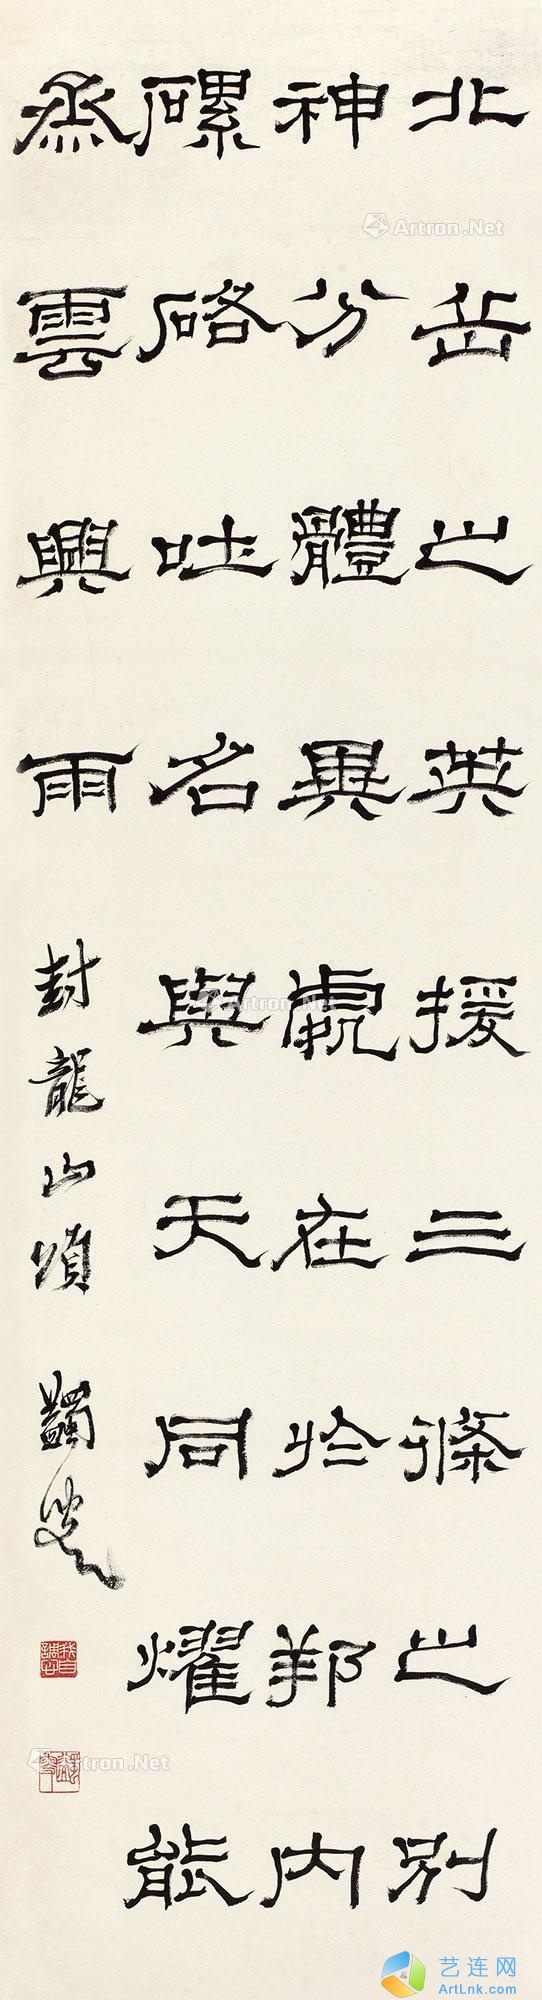 北岳之英援三條之別
神分體異處在於邦内
磥硌吐名與天同燿能
烝雲興雨
封龍山頌 蠲叟
Artron.Net
Artron.Net
Artron.Net
艺连网
ArtLnk.com